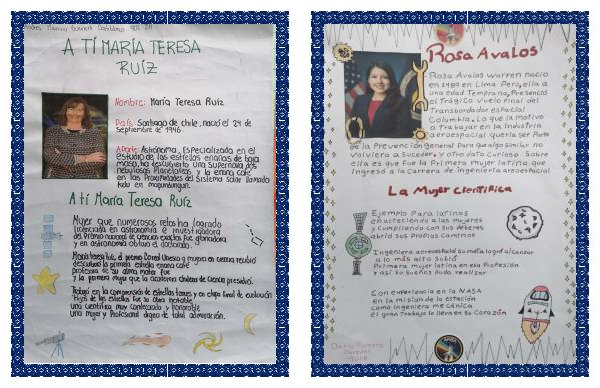 A TÍ MARÍA TERESA
RUÍZ
Nombre: María Teresa Ruíz
País: Santiago de chile, nació el 24 de
Septiembre de 1946.
Aporte: Astrónoma, Especializada en el
estudio de las estrellas enanas de baja
masa, ha descubierto una Supernova, dos
nebulosas Planetarias, y la enana café
en las Proximidades del Sistema Solar llamado
A tí María Teresa Ruíz
Mujer que numerosos retos ha logrado
licenciada en astronomía e investigadora
del Premio nacional de ciencias exactas fue ganadora
y en astronomía obtuvo el doctorado.
descubrió la primera estrella enana café
profesora de su alma mater fue
y la primera mujer que la academia chilena de Ciencia presidió.
Trabajó en la comprensión de estrellas tenues y en etapa final de evolución
de las estrellas fue su obra notable
una científica muy confesada y honorable
una mujer y Profesional digna de total admiración.
Rosa Avalos
Rosa Avalos Warren nació
en 1989 en Lima Perú, ella a
una edad Temprana, Presenció
el Trágico vuelo Final del
Transbordador espacial
Columbia. Lo que la motivó
a Trabajar en la industria
aeroespacial quería ser Parte
de la Prevención general Para que algo similar no
Volviera a Suceder. y otro dato curioso Sobre
ella es que fue la Primera mujer latina que
ingresó a la Carrera de ingeniería aeroespacial
La Mujer Científica
Ejemplo Para latinos
enalteciendo a las mujeres
y Cumpliendo con sus deberes
abrió sus Propios Caminos
Ingeniera aeroespacial su meta logró alcanzar
a lo más alto Subió
Primera mujer latina en esa Profesión
y así su sueños Pudo realizar
Con experiencia en la NASA
en la misión de la estación
como ingeniera mecánica
el gran Trabajo lo lleva en su Corazón